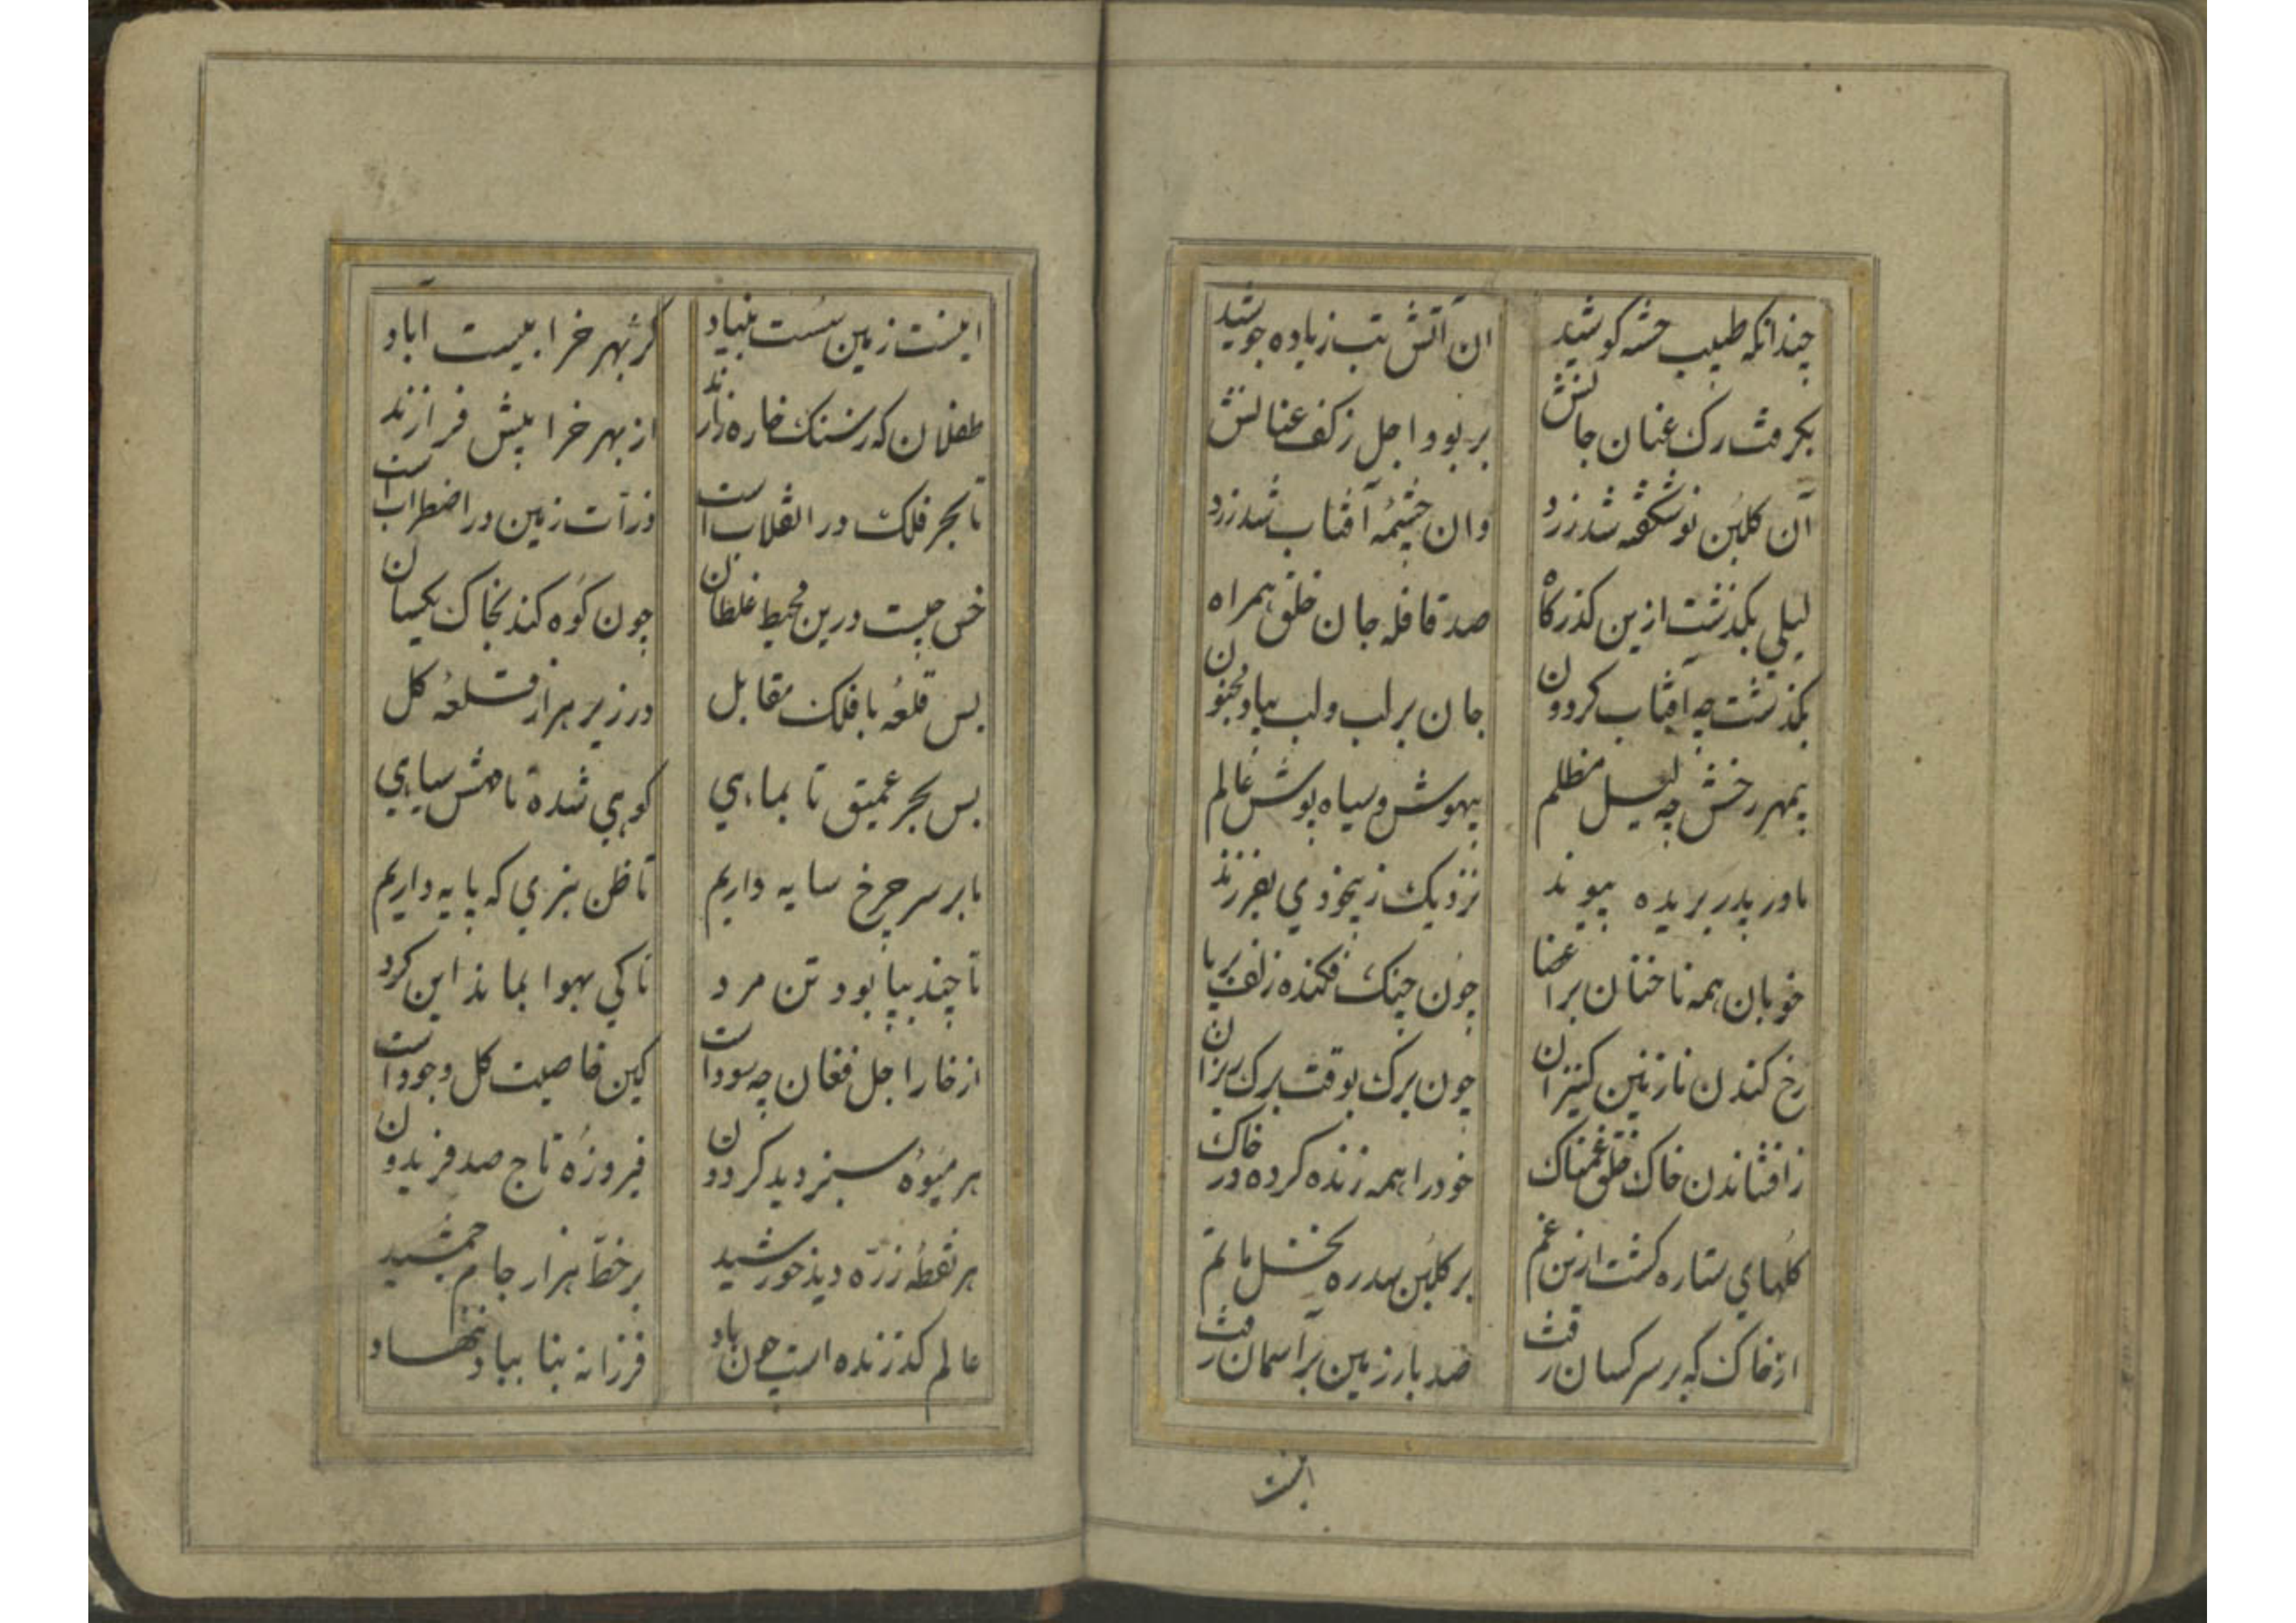 چندانکه طبیب خسته کوشید ان آتش تب زیاده جوشید
بکرفت رک عنان جانش بربود اجل زکف عنانش
آن کلبُن نوشکفته شد زرد وان چشمهٔ آفتاب شد زرد
لیلی بکذشت ازین کذرکاه صد قافله جان خلق همراه
بکذشت چه آفتاب کردون جان برلب ولب بیاد مجنون
بیمهر رخش چه لیل مظلم بیهوش وسیاه پوش عالم
مادر پدر بریده پیوند نزدیک زبیخودی بفرزند
خوبان همه ناخنان براعضا چون چنک فکنده زلف برپا
رخ کندن نازنین کنیزان چون برک بوقت برک ریزان
زافشاندن خاک خلق غمناک خودرا همه زنده کرده در خاک
کلهای ستاره کشت ازین غم بر کلبُن سدره نخل ماتم
ازخاک که بر سر کسان رفت صد بار زمین برآسمان رفت
اینست
اینست زمین سُست بنیاد کز بهر خرابیست آباد
طفلان که زسنک خاره سازند از بهر خرابیش فرازند
تا بحر فلک در انقلاب است ذرّات زمین در اضطراب است
خس چیست درین محیط غلطان چون کوه کند بخاک یکسان
بس قلعهٔ با فلک مقابل در زیر هزار قلعهٔ کل
بس بحر عمیق تا بماهی کوهی شده تا مهش سیاهی
ما بر سر چرخ سایه داریم تا ظن نبری که پایه داریم
تا چند بپا بود تن مرد تا کی بهوا بماند این کرد
از خار اجل فغان چه سود است کین خاصیت کل وجود است
هر میوهٔ سبز دید کردون فیروزهٔ تاج صد فریدون
هر نقطه زرّه دید خورشید بر خطّ هزار جام جمشید
عالم کذرنده است چون باد فرزانه بنا بباد ننهاد